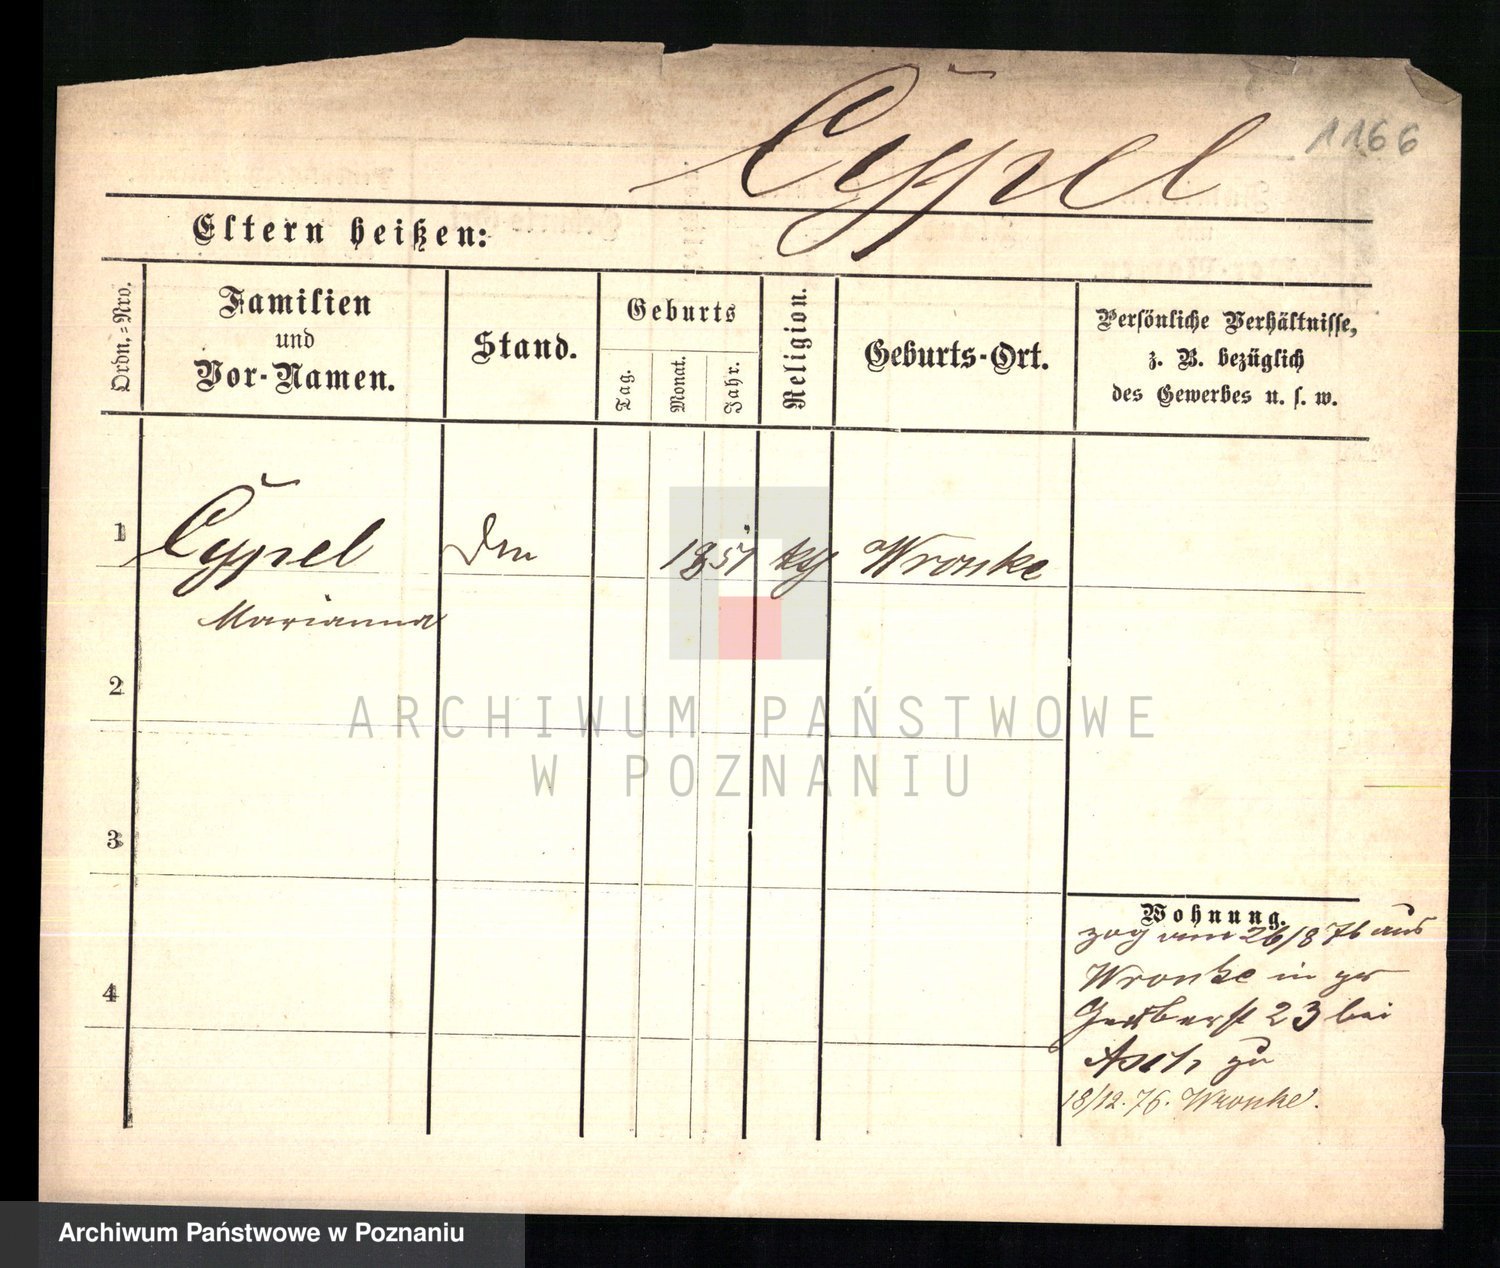 1166
Cÿppel
Eltern heißen:
Ordn.=Nro.
Familien
und
Vor-Namen.
Stand.
Geburts
Tag.
Monat.
Jahr.
Religion.
Geburts-Ort.
Persönliche Verhältnisse,
z. B. bezüglich
des Gewerbes u. s. w.
1
Cÿppel
1851 kth Wronke
Marianna
2
ARCHIWUM PAŃSTWOWE
W POZNANIU
3
Wohnung.
zog am 26/8 76 aus
Wronke in
Gerberst 23 bei
zu
18/12. 76. Wronke.
4
Archiwum Państwowe w Poznaniu